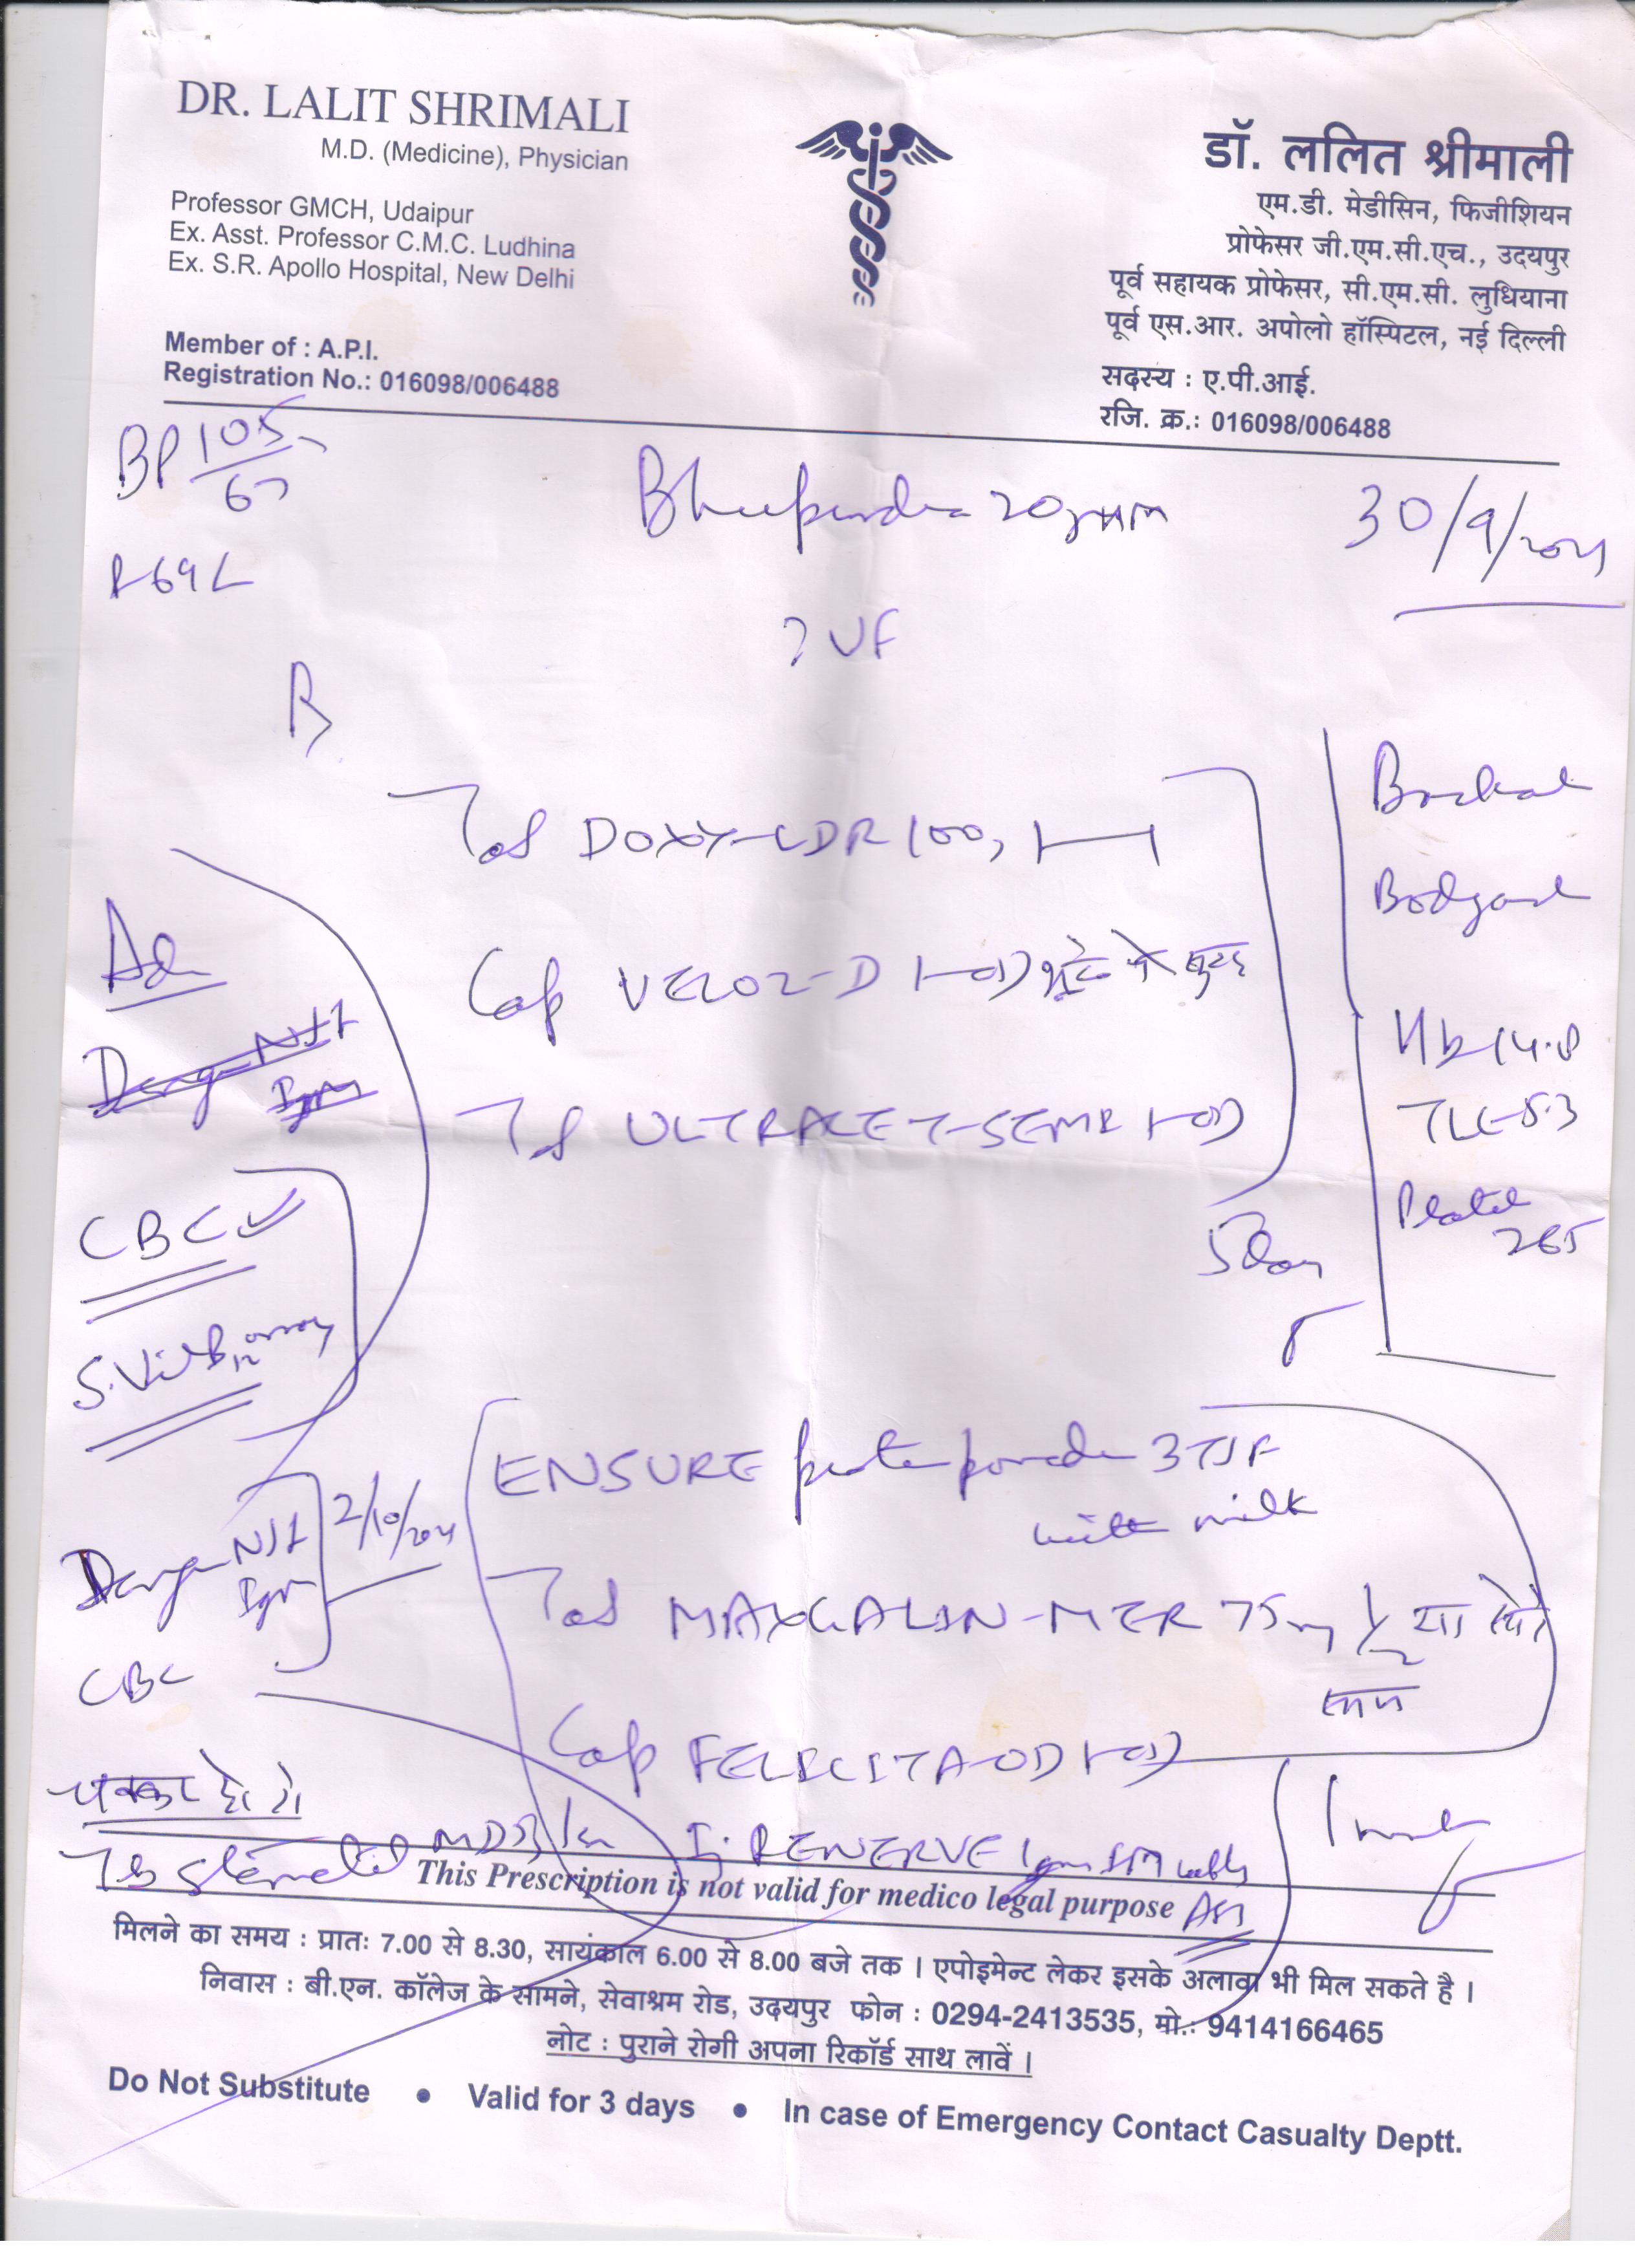 DR. LALIT SHRIMALI
M.D. (Medicine), Physician
Professor GMCH, Udaipur
Ex. Asst. Professor C.M.C. Ludhina
Ex. S.R. Apollo Hospital, New Delhi
Member of : A.P.I.
Registration No.: 016098/006488
डॉ. ललित श्रीमाली
एम.डी. मेडीसिन, फिजीशियन
प्रोफेसर जी.एम.सी.एच., उदयपुर
पूर्व सहायक प्रोफेसर, सी.एम.सी. लुधियाना
पूर्व एस.आर. अपोलो हॉस्पिटल, नई दिल्ली
सदस्य : ए.पी.आई.
रजि. क्र.: 016098/006488
BP 105/67
Bhupendra 20
30/9/2021
? VF
Tab DOXY-LDR 100, 1-1
Cap VELOZ-D 1-OD
Tab ULTRACET-SEMI 1-OD
5 day
Bodyache
Hb 14.8
TLC-5.3
Platel 265
Ad
Dengue NS1
IgM
CBC
S. Vit B12
Dengue NS1
IgM
2/10/2021
CBC
ENSURE powder 3TSF
with milk
Tab MAXGALIN-MER 75mg
Cap FELICITA-OD 1-OD
Inj RENERVE 1gm IM
चक्कर हो तो
Tab Stemetil MD
This Prescription is not valid for medico legal purpose
मिलने का समय : प्रातः 7.00 से 8.30, सायंकाल 6.00 से 8.00 बजे तक । एपोइमेन्ट लेकर इसके अलावा भी मिल सकते है ।
निवास : बी.एन. कॉलेज के सामने, सेवाश्रम रोड, उदयपुर फोन : 0294-2413535, मो.: 9414166465
नोट : पुराने रोगी अपना रिकॉर्ड साथ लावें ।
Do Not Substitute • Valid for 3 days • In case of Emergency Contact Casualty Deptt.